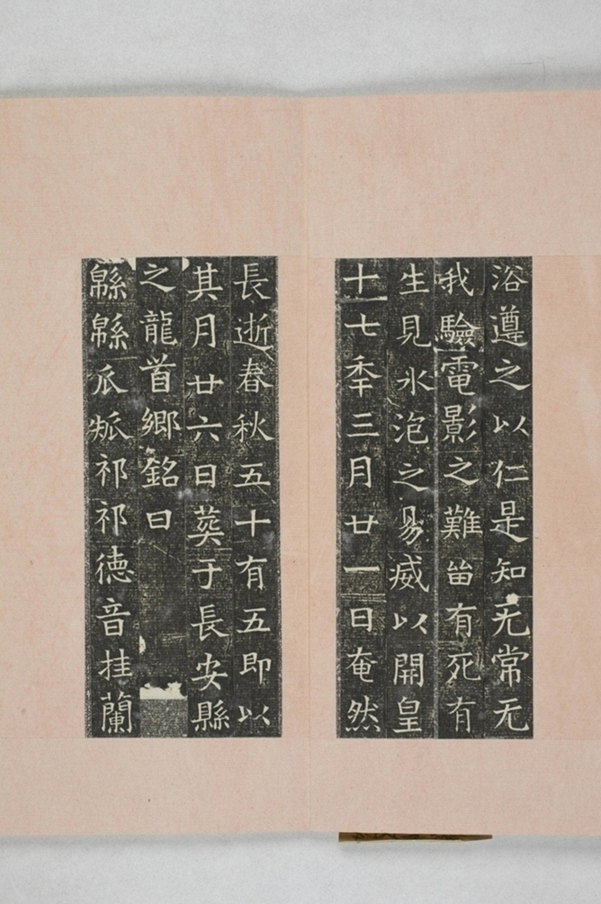 浴遵之以仁是知无常无
我驗電影之難畄有死有
生見水泡之易烕以開皇
十七年三月廿一日奄然
長逝春秋五十有五即以
其月廿六日葬于長安縣
之龍首鄉銘曰
緜緜瓜瓞祁祁德音挂蘭